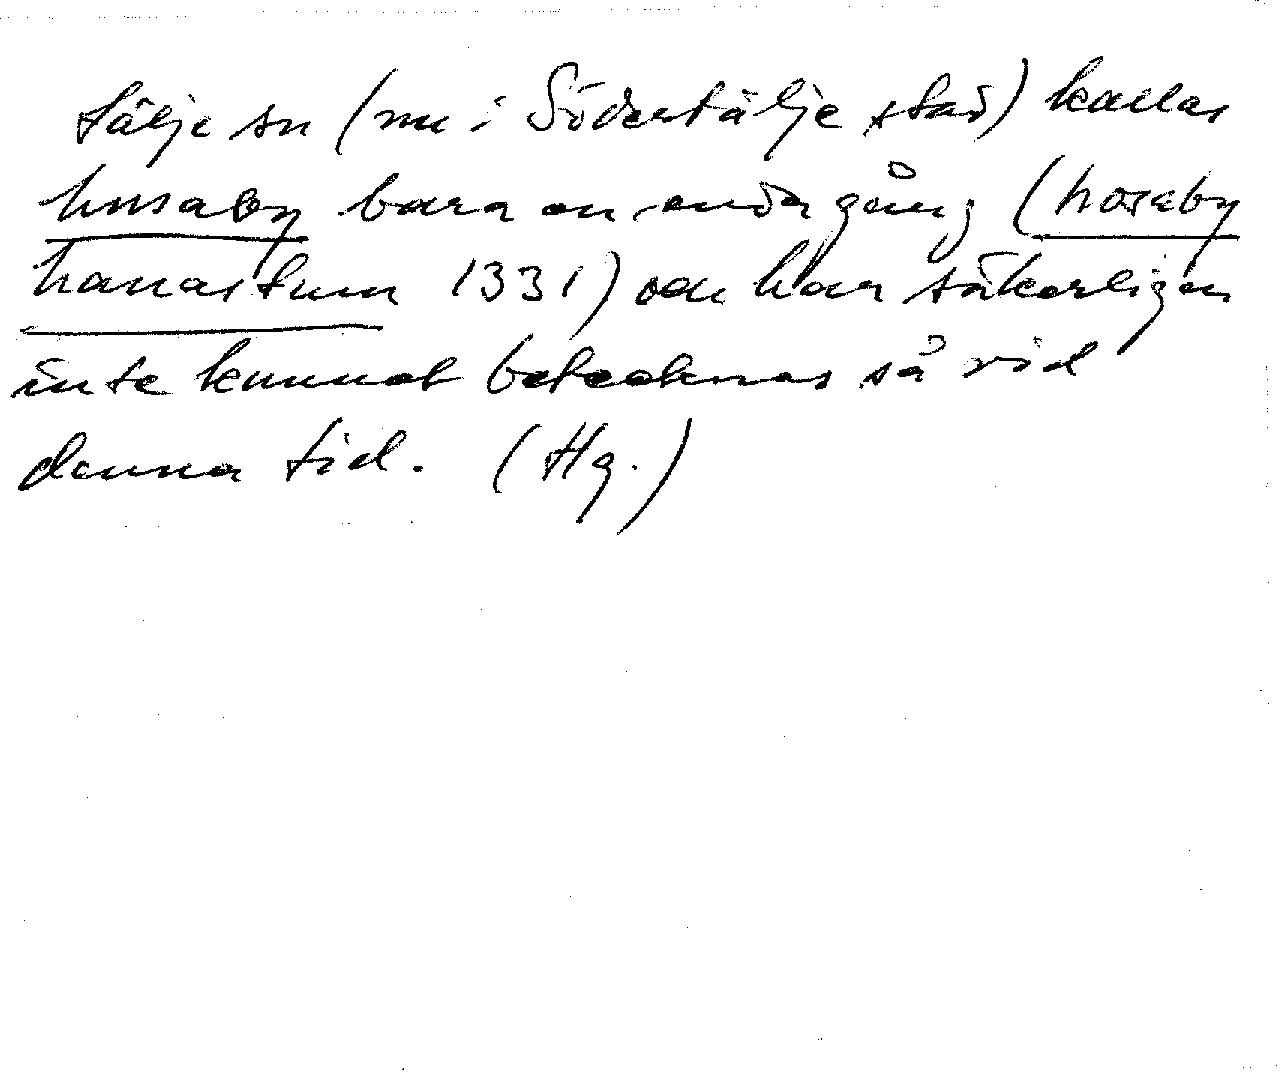 Tälje sn (nu i Södertälje stad) kallas
husaby bara en enda gång (hoseby
hanastum 1331) och har säkerligen
inte kunnat betecknas så vid
denna tid. (Hg.)